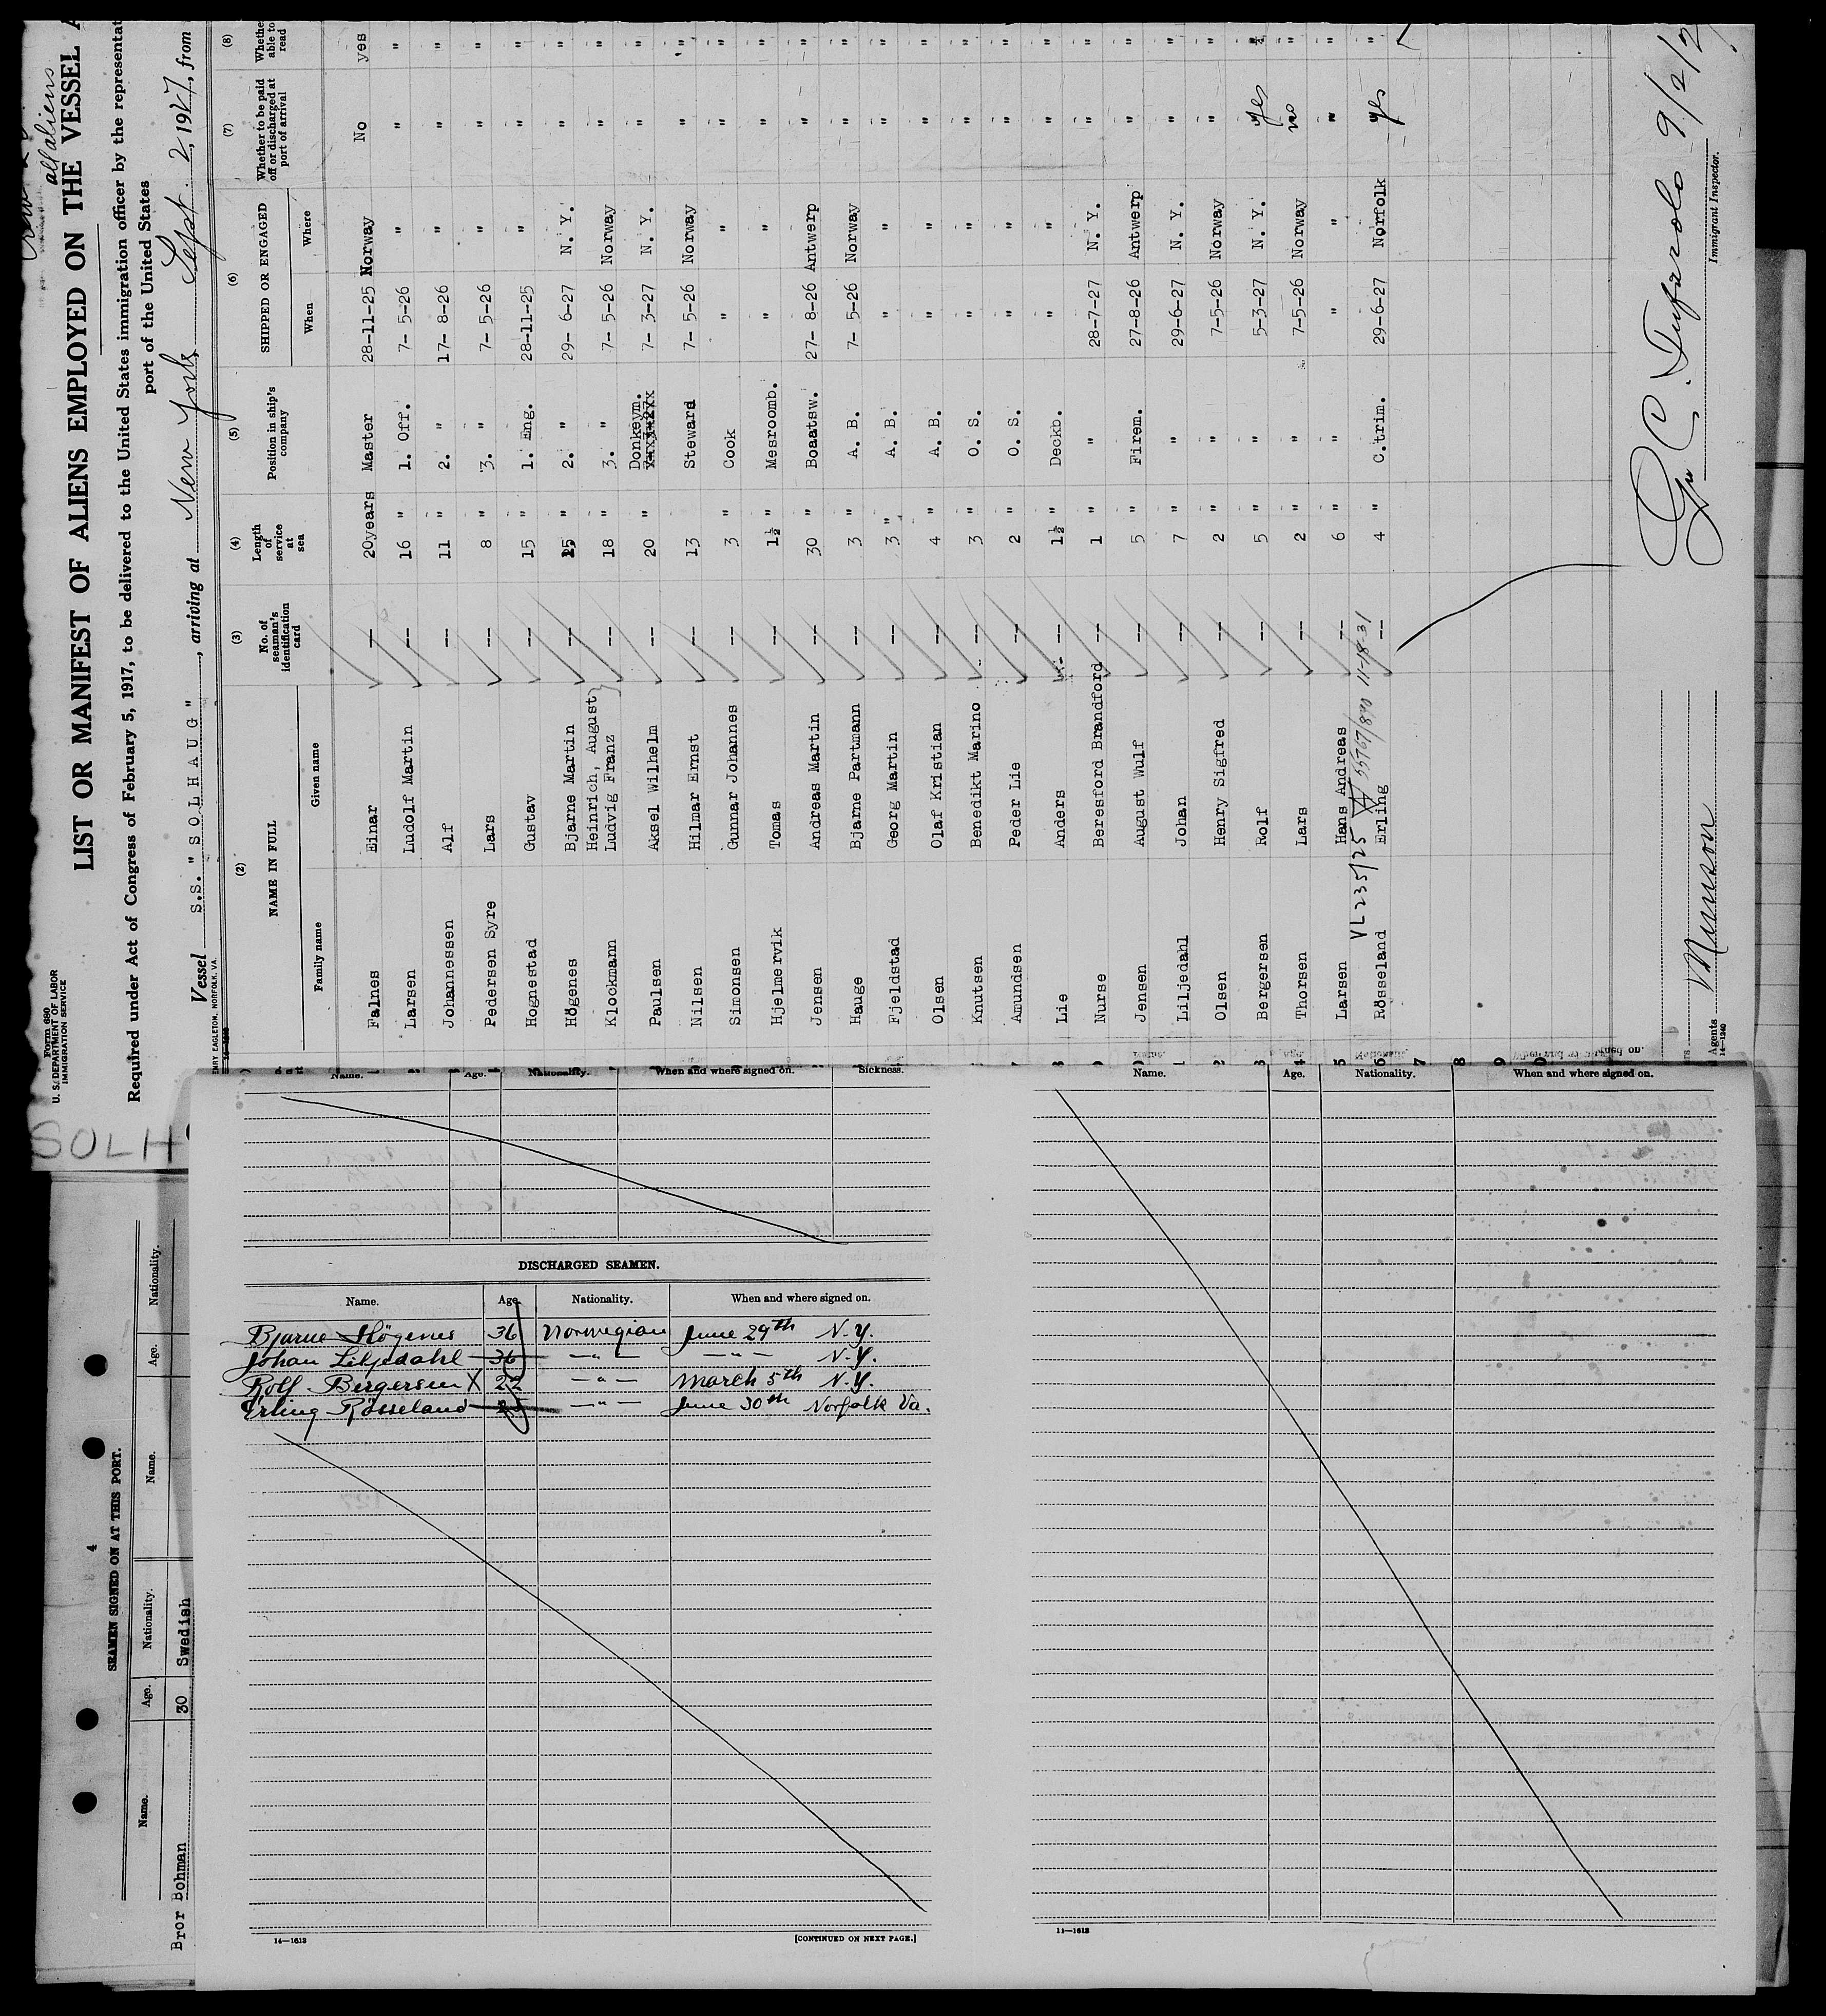 Form 680
U. S. DEPARTMENT OF LABOR
IMMIGRATION SERVICE
all aliens
LIST OR MANIFEST OF ALIENS EMPLOYED ON THE VESSEL
Required under Act of Congress of February 5, 1917, to be delivered to the United States immigration officer by the representat
port of the United States
Vessel S.S. "SOLHAUG", arriving at New York, Sept. 2, 1927, from
HENRY EAGLETON, NORFOLK, VA.
(2) (3) (4) (5) (6) (7) (8)
NAME IN FULL No. of seaman's identification card Length of service at sea Position in ship's company SHIPPED OR ENGAGED Whether to be paid off or discharged at port of arrival Whethe able to read
Family name Given name When Where
Falnes Einar -- 20years Master 28-11-25 Norway No yes
Larsen Ludolf Martin -- 16 " 1. Off. 7- 5-26 " " "
Johannessen Alf -- 11 " 2. " 17- 8-26 " " "
Pedersen Syre Lars -- 8 " 3. " 7- 5-26 " " "
Hognestad Gustav -- 15 " 1. Eng. 28-11-25 " " "
Högenes Bjarne Martin -- 15 " 2. " 29- 6-27 N. Y. " "
Heinrich, August
Klockmann Ludvig Franz -- 18 " 3. " 7- 5-26 Norway " "
Paulsen Aksel Wilhelm -- 20 " Donkeym. 7- 3-27 N. Y. " "
Nilsen Hilmar Ernst -- 13 Steward 7- 5-26 Norway " "
Simonsen Gunnar Johannes -- 3 " Cook " " " "
Hjelmervik Tomas -- 1½ " Mesroomb. " " " "
Jensen Andreas Martin -- 30 " Boaatsw. 27- 8-26 Antwerp " "
Hauge Bjarne Partmann -- 3 " A. B. 7- 5-26 Norway " "
Fjeldstad Georg Martin -- 3 " A. B. " " " "
Olsen Olaf Kristian -- 4 " A. B. " " " "
Knutsen Benedikt Marino -- 3 " O. S. " " " "
Amundsen Peder Lie -- 2 " O. S. " " " "
Lie Anders -- 1½ " Deckb. " " " "
Nurse Beresford Brandford -- 1 " " 28-7-27 N. Y. " "
Jensen August Wulf -- 5 " Firem. 27-8-26 Antwerp " "
Liljedahl Johan -- 7 " " 29-6-27 N. Y. " "
Olsen Henry Sigfred -- 2 " " 7-5-26 Norway " "
Bergersen Rolf -- 5 " " 5-3-27 N. Y. yes "
Thorsen Lars -- 2 " " 7-5-26 Norway no "
Larsen Hans Andreas -- 6 " " " " " "
VL 235/25 55767/840 11-18-31
Rösseland Erling -- 4 " C.trim. 29-6-27 Norfolk yes "
9/2/2
Immigrant Inspector.
Munson
Agents
14-1240
SOLH
4
SEAMEN SIGNED ON AT THIS PORT.
Name. Age. Nationality. Name. Age. Nationality.
Bror Bohman 30 Swedish
Name. Age. Nationality. When and where signed on. Sickness.
DISCHARGED SEAMEN.
Name. Age. Nationality. When and where signed on.
Bjarne Högenes 36 Norwegian June 29th N.Y.
Johan Liljedahl 36 — " — — " — N.Y.
Rolf Bergersen X 22 — " — March 5th N.Y.
Erling Rösseland — " — June 30th Norfolk Va.
14—1613
[CONTINUED ON NEXT PAGE.]
Name. Age. Nationality. When and where signed on.
14—1613